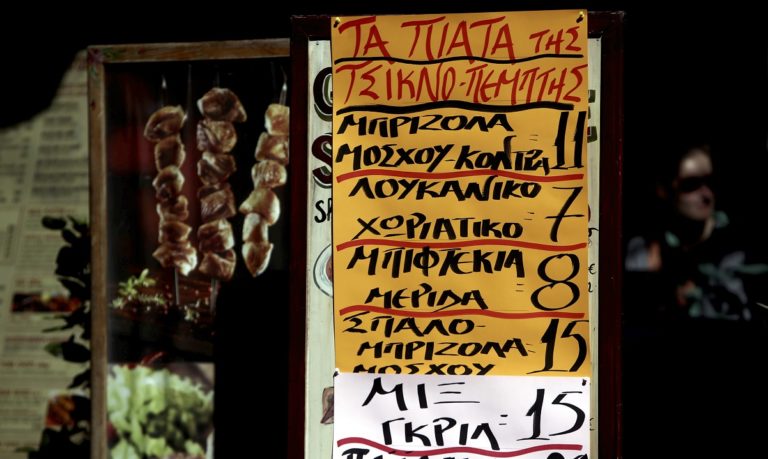 ΤΑ ΠΙΑΤΑ ΤΗΣ
ΤΣΙΚΝΟ-ΠΕΜΠΤΗΣ
ΜΠΡΙΖΟΛΑ
ΜΟΣΧΟΥ-ΚΟΝΤΡΑ 11
ΛΟΥΚΑΝΙΚΟ
ΧΩΡΙΑΤΙΚΟ 7
ΜΠΙΦΤΕΚΙΑ
ΜΕΡΙΔΑ 8
ΣΠΑΛΟ-
ΜΠΡΙΖΟΛΑ 15
ΜΟΣΧΟΥ
ΜΙΞ
ΓΚΡΙΛ= 15